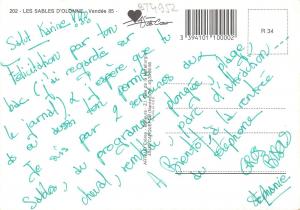 202 - LES SABLES D'OLONNE - Vendée 85
3394101100002
R 34
Salut Karine !!!
Félicitation par ton
bac (j'ai regardé sur
le journal) J'espère que tu
as eu aussi ton permis
Je suis par 2 semaines aux
Sables, au programme : plongée, plage,
cheval, remblai, parc d'attraction ...
A Bientôt à la rentrée
au téléphone
GROS BISOUS
Stéphanie